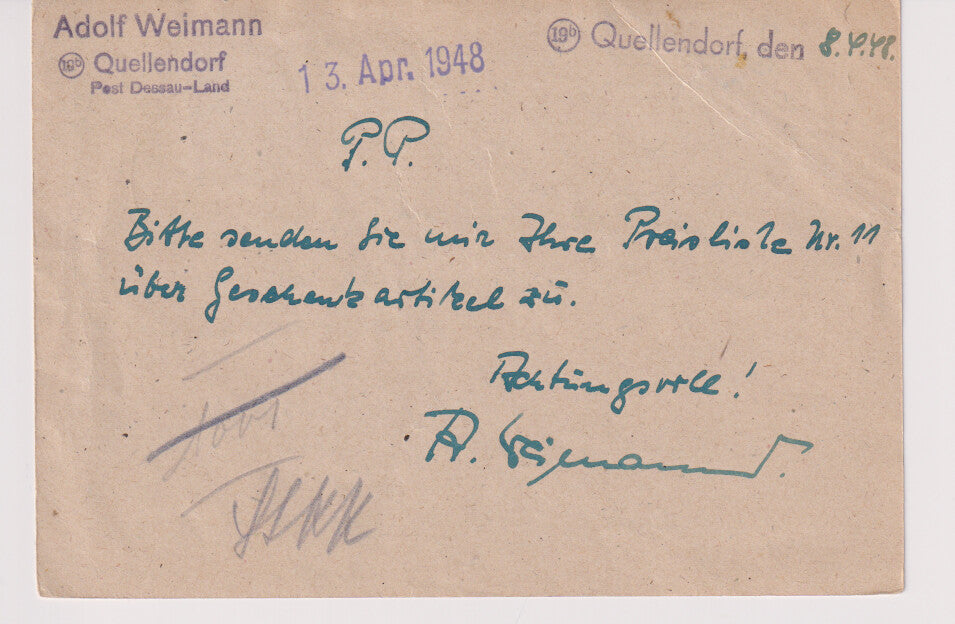 Adolf Weimann
19b Quellendorf
Post Dessau-Land
13. Apr. 1948
19b Quellendorf, den 8.4.48.
P.P.
Bitte senden Sie mir Ihre Preisliste Nr. 11
über Geschenkartikel zu.
Achtungsvoll!
A. Weimann.